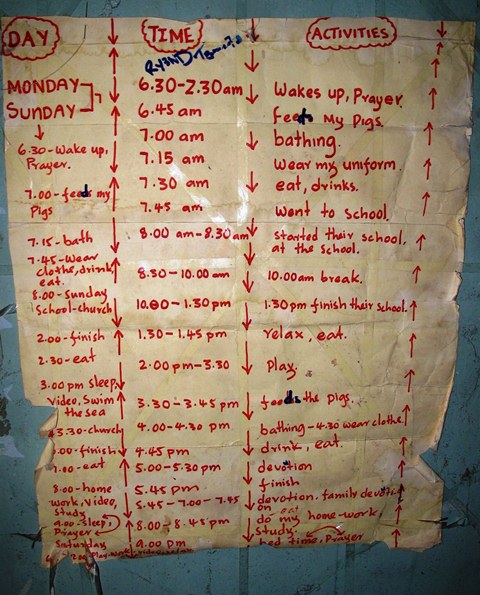 DAY TIME ACTIVITIES
MONDAY 6.30-2.30am Wakes up, Prayer.
SUNDAY 6.45 am feeds My Pigs.
7.00 am bathing.
6.30-Wake up, Prayer. 7.15 am Wear my uniform
7.30 am eat, drinks.
7.00-feed my Pigs 7.45 am Went to school.
7.15-bath 8.00 am-8.30am started their school, at the school.
7.45-Wear clothe, drink, eat. 8.30-10.00 am 10.00am break.
8.00-Sunday School-church 10.00-1.30 pm 1.30pm finish their school.
2.00-finish 1.30-1.45 pm relax, eat.
2.30-eat 2.00 pm-3.30 Play.
3.00 pm sleep, video, Swim the sea 3.30-3.45 pm feeds the pigs
3.30-church 4.00-4.30 pm bathing-4.30 wear clothe
.00-finish 4.45 pm drink, eat.
7.00-eat 5.00-5.30 pm devotion
8.00-home work, video, study 5.45 pm finish
5.45-7.00-7.45 devotion. family devotion
on eat
9.00-sleep, Prayer 8.00-8.45 pm do my home-work, study,
Saturday 9.00 pm bed time, Prayer